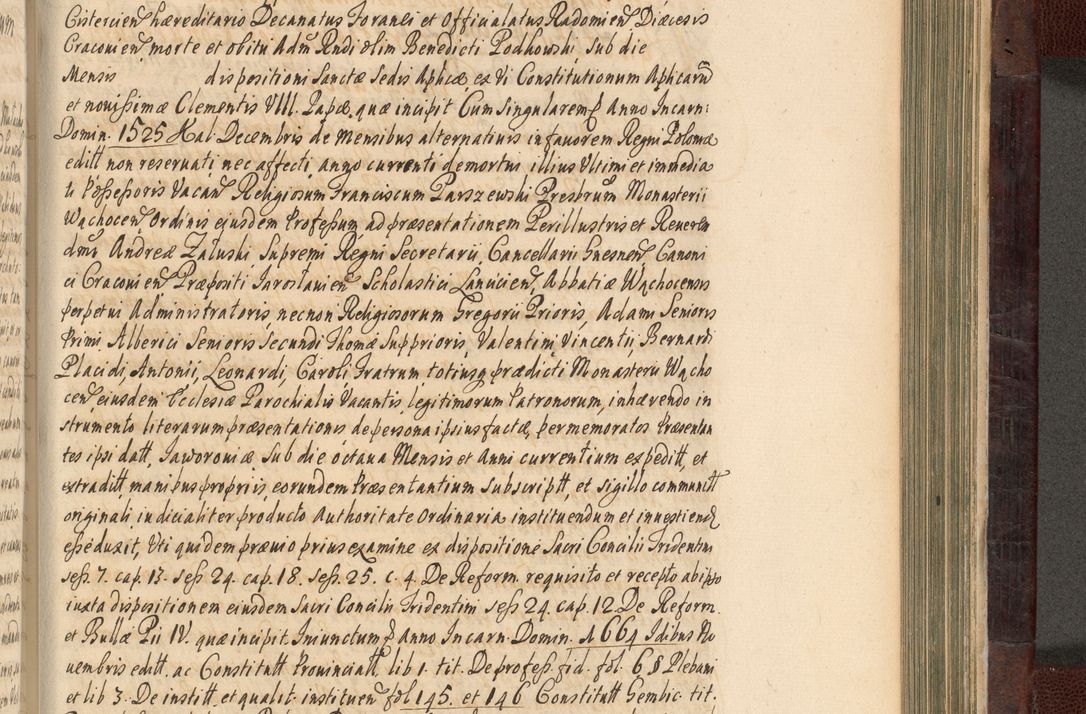 Cistercien̄ hæreditario Decanatus Foranei et Officialatus Radomien̄ Diæcesis
Cracovien̄ morte et obitu Adm̄ Rndi olim Benedicti Podkowski sub die
Mensis dispositioni Sanctæ Sedis Aplicæ, ex Vi Constitutionum Aplicarū
et novissimæ Clementis VIII. Papæ, quæ incipit Cum singularem Anno Incarn:
Domin. 1525 Kal. Decembris de mensibus alternativis in favorem Regni Poloniæ
editt non reservati, nec affecti, anno currenti demortui, illius Ultimi et immedia
ti Possessoris Vacan̄ Religiosum Franciscum Parszewski Presbrum Monasterii
Wąchocen̄ Ordinis ejusdem Professum, ad præsentationem Perillustris et Reveren
dmi Andreæ Załuski Supremi Regni Secretarii, Cancellarii Gnesnen̄ Canoni
ci Cracovien̄ Præpositi Jaroslavien̄ Scholastici Lancicien̄, Abbatiæ Wąchocensis
perpetui Administratoris, necnon Religiosorum Gregorii Prioris, Adami Senioris
Primi Alberici Senioris, Secundi Thomæ Supprioris, Valentini, Vincentii, Bernardi
Placidi, Antonii, Leonardi, Caroli, Fratrum, totiusq prædicti Monasterii Wącho
cen̄, ejusdem Ecclesiæ Parochialis Vacantis, legitimorum Patronorum, inhærendo in
strumento literarum præsentationis de persona ipsius factæ, per memoratos Præsentan
tes ipsi datt, Jaworoviæ sub die octava Mensis et Anni currentium expeditt, et
extraditt, manibus propriis, eorundem Præsentantium subscriptt, et sigillo communitt
originali, judicialiter producto Authoritate Ordinaria instituendum et investiend
esse duxit, Uti quidem prævio prius examine ex dispositione Sacri Concilii Tridentini
sess. 7. cap. 13. sess 24. cap. 18. sess. 25. c. 4. De Reform. requisito et recepto ab ipso
iuxta dispositionem ejusdem Sacri Concilii Tridentini sess 24. cap. 12. De Reform.
et Bullæ Pii IV. quæ incipit Iniunctum Anno Incarn. Domin. 1664 Idibus No
vembris editt. ac Constitutt Provincialt, lib 1. tit. De profess. fid. fol. 6 § Plebani
et lib 3. De institt. et qualit. instituen̄ fol 145. et 146 Constitutt Gembic. tit.